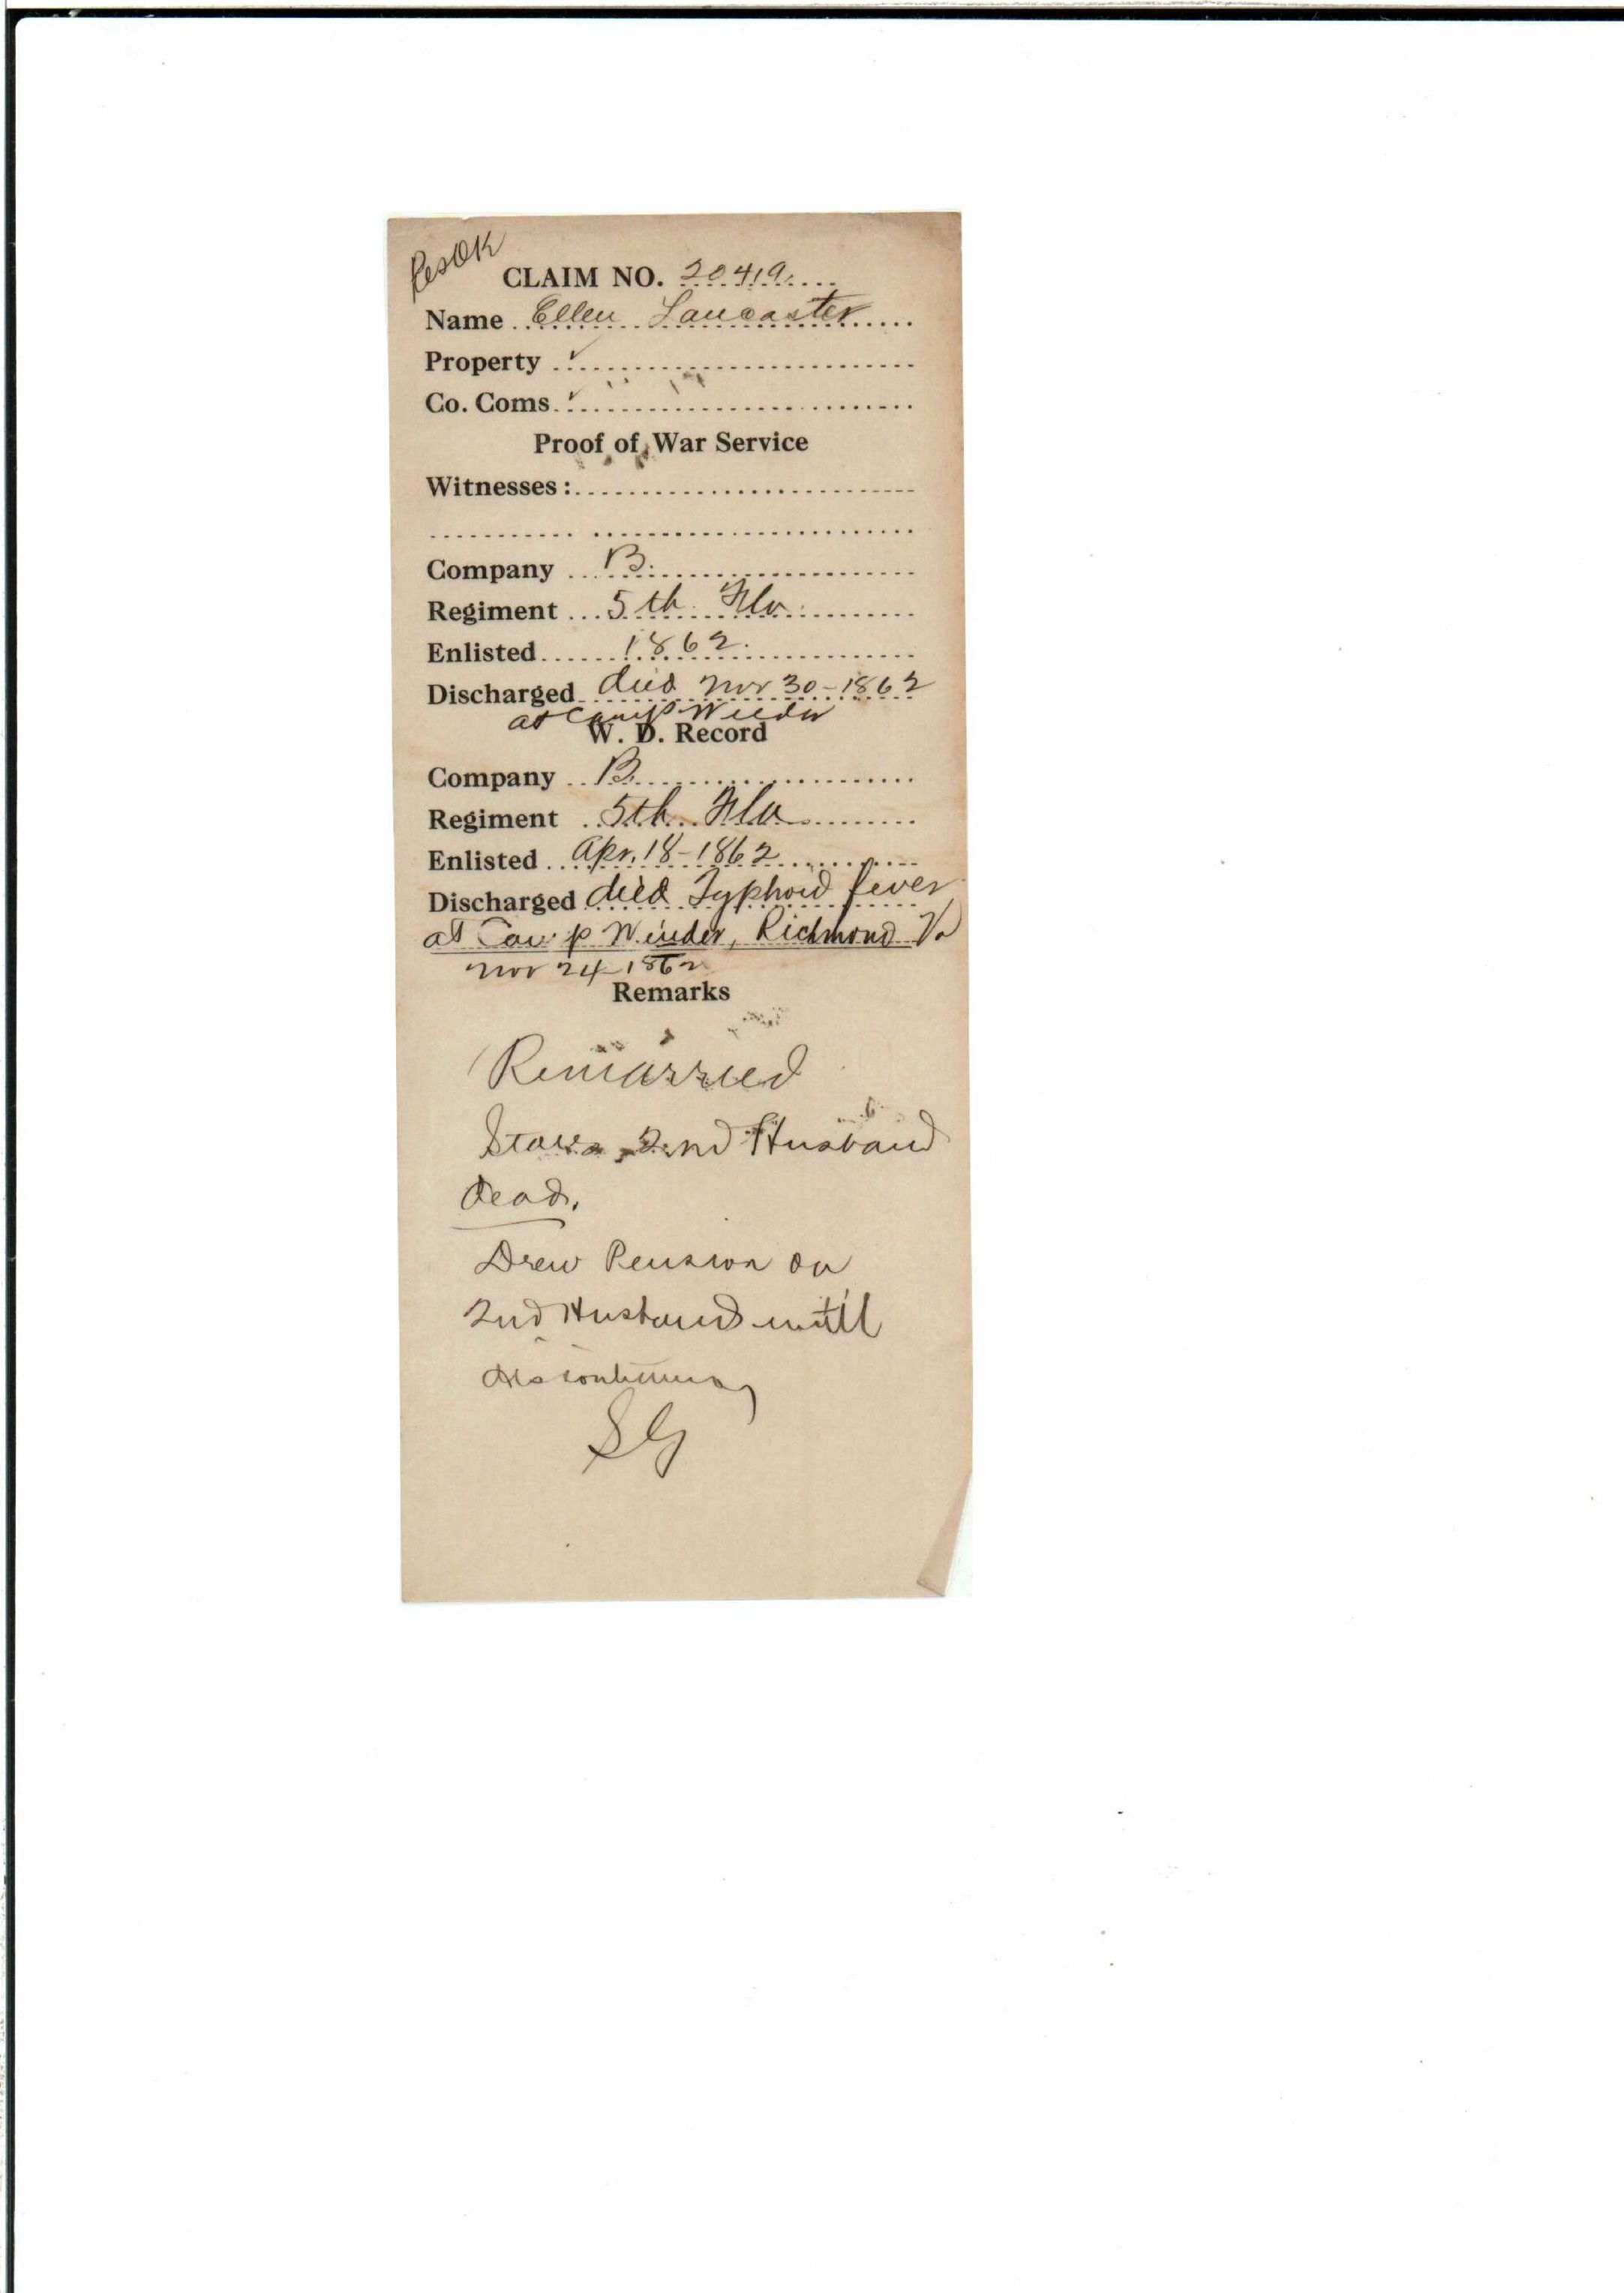 Res OK
CLAIM NO. 20419
Name Ellen Lancaster
Property ✓
Co. Coms. ✓
Proof of War Service
Witnesses:
Company B.
Regiment 5th Fla.
Enlisted 1862.
Discharged died Nov 30-1862
at Camp Winder
W. D. Record
Company B.
Regiment 5th Fla
Enlisted Apr. 18-1862
Discharged died Typhoid fever
at Camp Winder, Richmond Va
Nov 24-1862
Remarks
Remarried
2nd Husband
dead.
Drew Pension on
2nd Husband until
SG